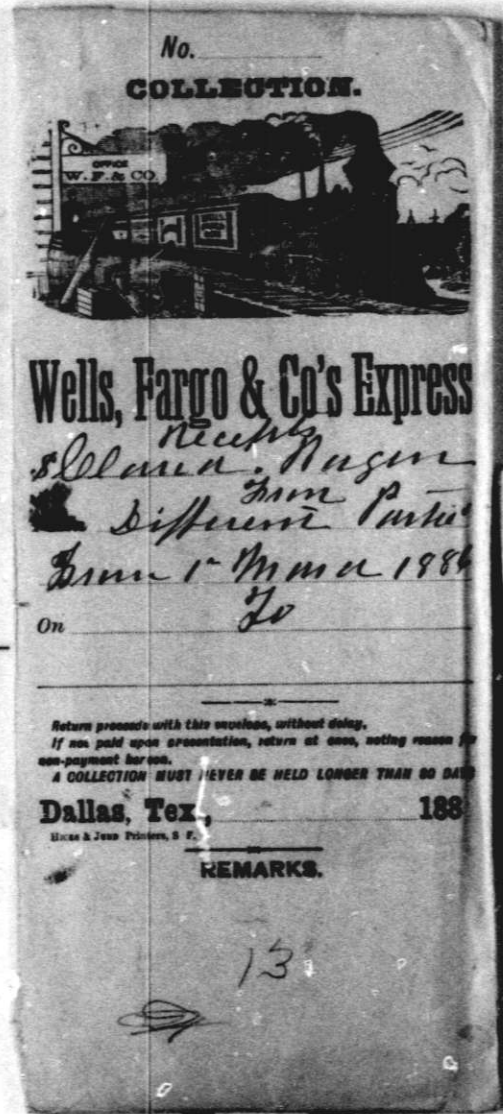 No.
COLLECTION.
OFFICE
W. F. & CO.
Wells, Fargo & Co's Express
Receipts
$ Clara. Ragen
From
Different Parties
From 1st 1886
On To
Return proceeds with this envelope, without delay.
If not paid upon presentation, return at once, noting reason for
non-payment hereon.
A COLLECTION MUST NEVER BE HELD LONGER THAN 30 DAYS
Dallas, Tex., 188
Hicks & Judd Printers, S F.
REMARKS.
13